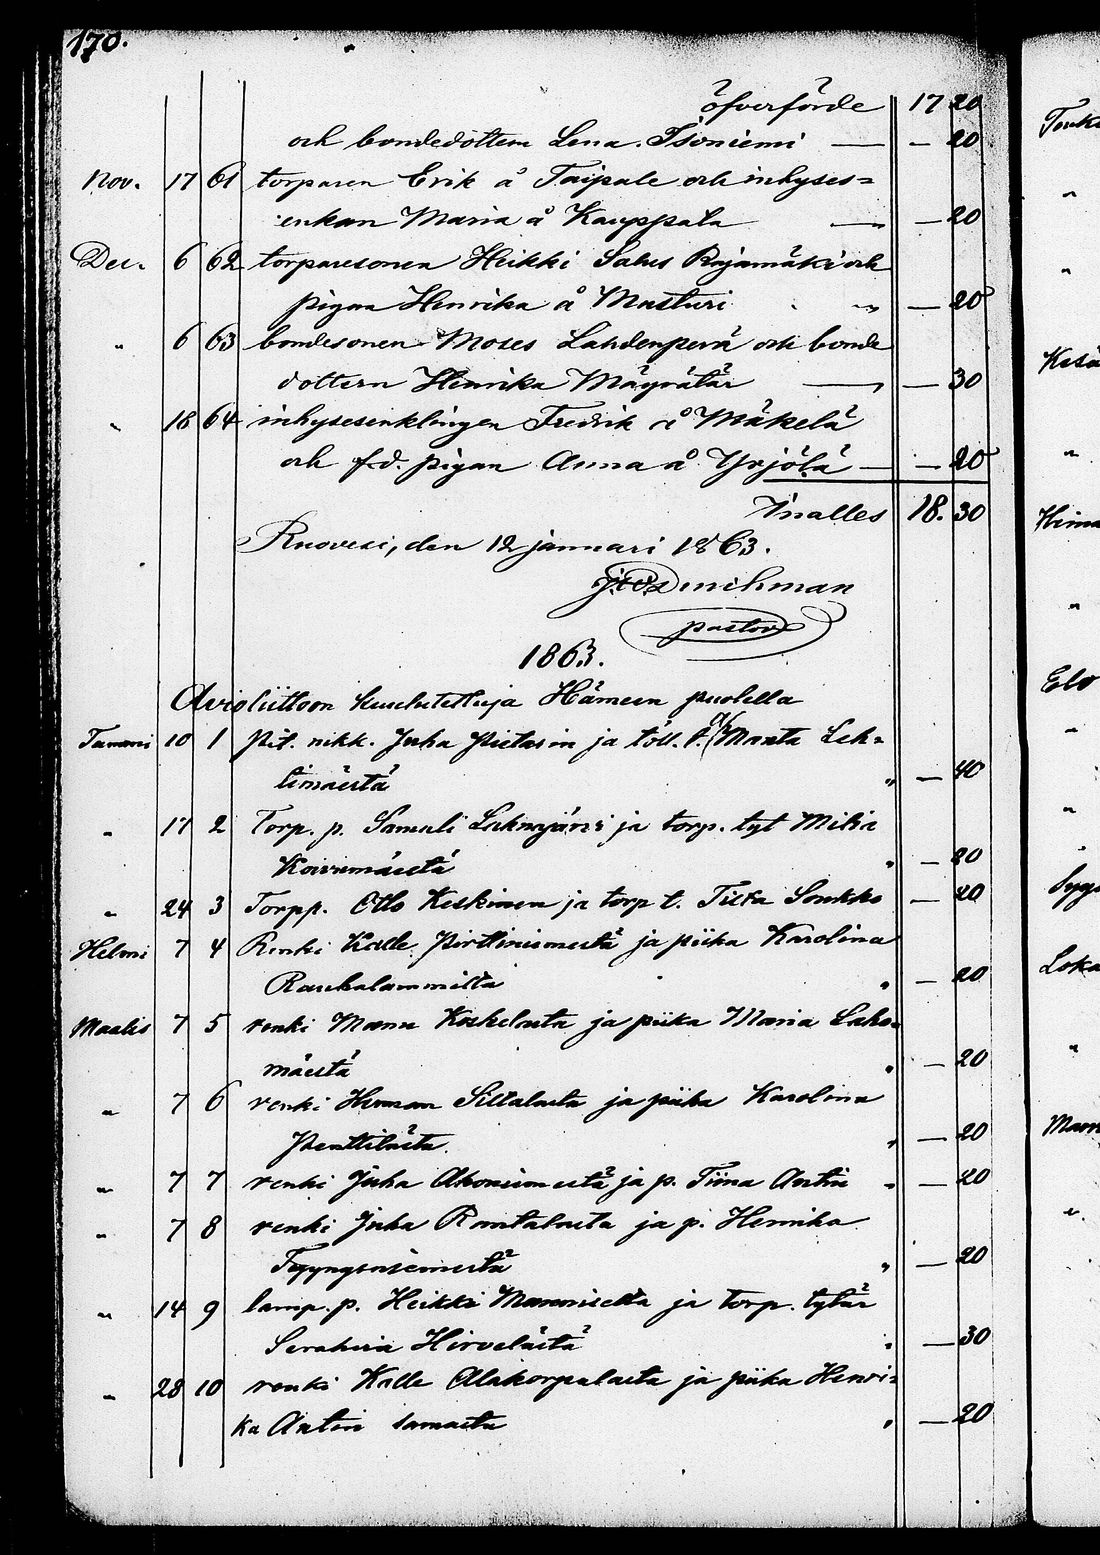 170.
öfverförde 17 20
och bondedottern Lena Isoniemi — — 20
Nov. 17 61 torparen Erik å Taipale och inhyses=
enkan Maria å Kauppala — — 20
Dec. 6 62 torparesonen Heikki Salus Rajamäki och
pigan Henrika å Masturi " — 20
" 6 63 bondesonen Moses Lahdenperä och bonde
dottern Henrika Mäyrätär — — 30
" 18 64 inhysesenklingen Fredrik å Mäkelä
och f.d. pigan Anna å Yrjölä — — 20
Inalles 18. 30
Ruovesi, den 12 januari 1863.
pastor
1863.
Avioliittoon kuulutettuja Hämeen puolella
Tammi 10 1 Pit. nikk. Juha Pietarin ja töll. t. Manta Leh=
timäestä " — 40
" 17 2 Torp. p. Samuli Lahnajärvi ja torp. tyt Miina
Koivumäestä " — 20
" 24 3 Torpp. Otto Keskinen ja torp t. Tilta Soukko — 20
Helmi 7 4 Renki Kalle Pirttiniemestä ja piika Karolina
Rauhalammilta " — 20
Maalis 7 5 renki Manu Kaskelasta ja piika Maria
mäestä " — 20
" 7 6 renki Herman Sillalasta ja piika Karolina
Penttilästä " — 20
" 7 7 renki Juha Ahoniemestä ja p. Tiina Antin " — 20
" 7 8 renki Juha Rantalasta ja p. Henrika
" — 20
" 14 9 lamp. p. Heikki Manniselta ja torp. tytär
Serahvia Hirvelästä " — 30
" 28 10 renki Kalle Alakorpulasta ja piika Henri=
ka Antin samasta " — 20